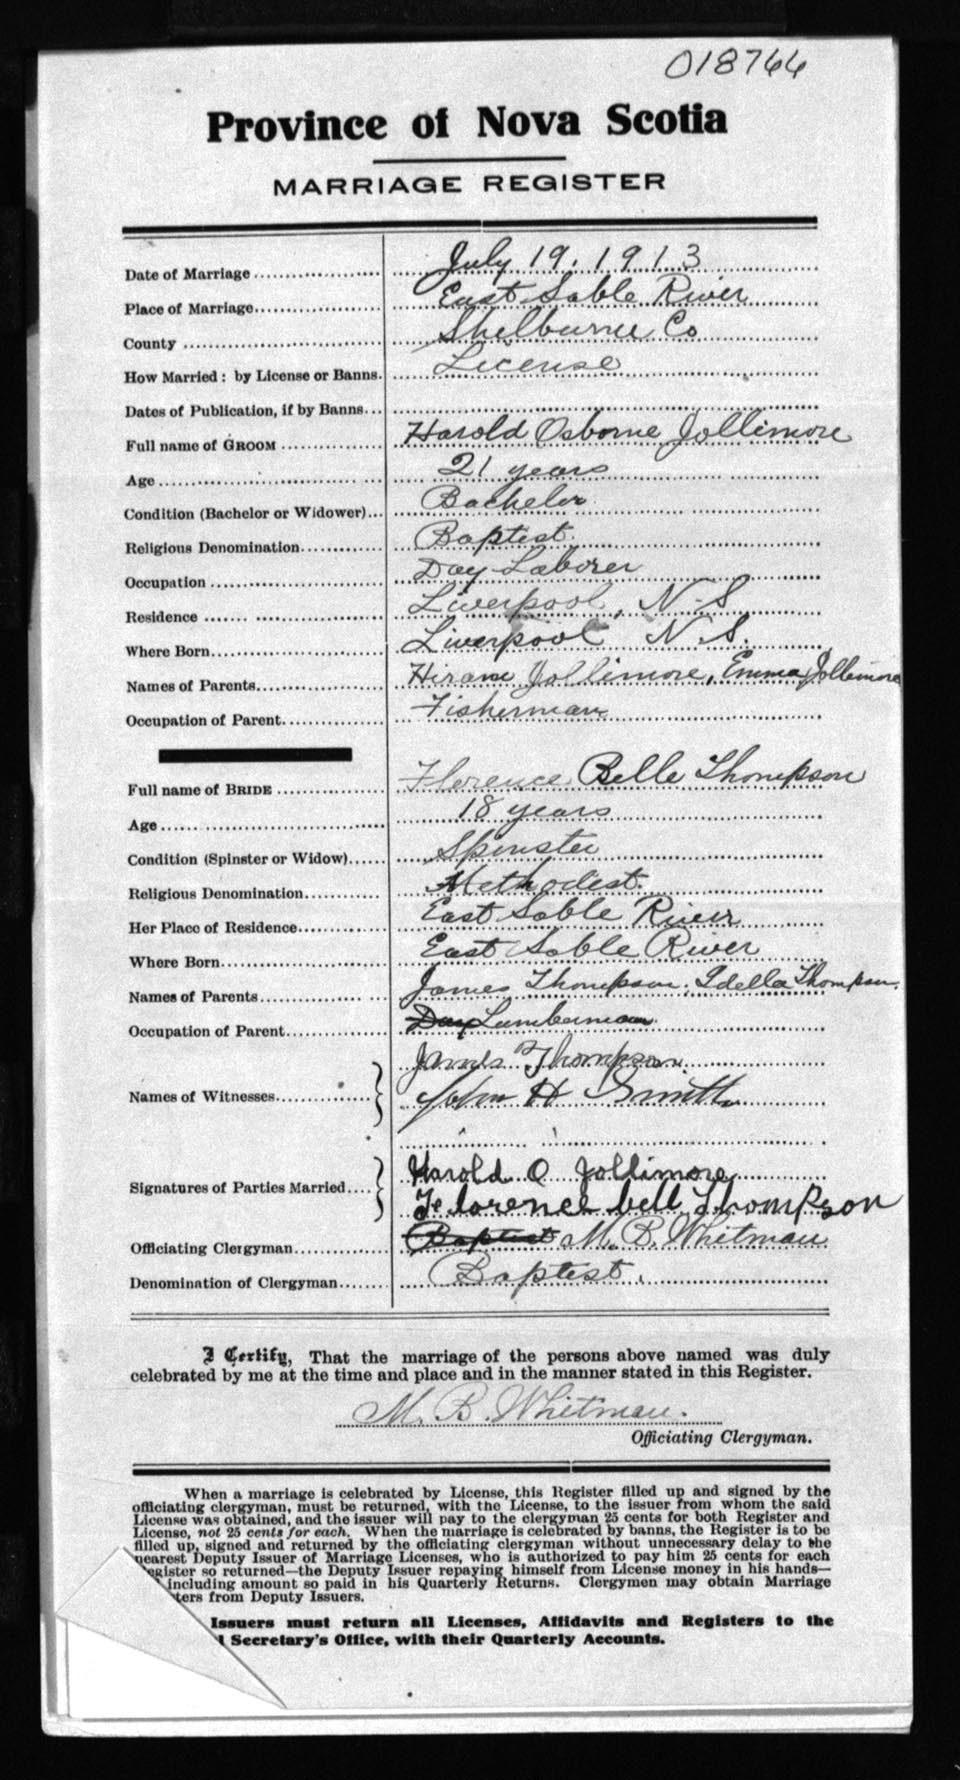 018766
Province of Nova Scotia
MARRIAGE REGISTER
Date of Marriage July 19. 1913
Place of Marriage East Sable River
County Shelburne Co
How Married: by License or Banns. License
Dates of Publication, if by Banns
Full name of GROOM Harold Osborne Jollimore
Age 21 years
Condition (Bachelor or Widower) Bachelor
Religious Denomination Baptist.
Occupation Day Laborer
Residence Liverpool, N-S
Where Born Liverpool N.S.
Names of Parents Hiram Jollimore, Emma Jollimore
Occupation of Parent Fisherman
Full name of BRIDE Florence Belle Thompson
Age 18 years
Condition (Spinster or Widow) Spinster
Religious Denomination Methodist.
Her Place of Residence East Sable River
Where Born East Sable River
Names of Parents James Thompson, Idella Thompson.
Occupation of Parent Day Lumberman
Names of Witnesses James Thompson.
John H Smith
Signatures of Parties Married Harold O Jollimore
Felorence bell Thompson
Officiating Clergyman Baptist M. B. Whitman
Denomination of Clergyman Baptist.
I Certify, That the marriage of the persons above named was duly
celebrated by me at the time and place and in the manner stated in this Register.
M. B. Whitman.
Officiating Clergyman.
When a marriage is celebrated by License, this Register filled up and signed by the
officiating clergyman, must be returned, with the License, to the issuer from whom the said
License was obtained, and the issuer will pay to the clergyman 25 cents for both Register and
License, not 25 cents for each. When the marriage is celebrated by banns, the Register is to be
filled up, signed and returned by the officiating clergyman without unnecessary delay to the
nearest Deputy Issuer of Marriage Licenses, who is authorized to pay him 25 cents for each
egister so returned—the Deputy Issuer repaying himself from License money in his hands—
including amount so paid in his Quarterly Returns. Clergymen may obtain Marriage
ters from Deputy Issuers.
Issuers must return all Licenses, Affidavits and Registers to the
l Secretary's Office, with their Quarterly Accounts.